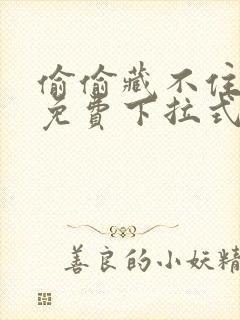 偷偷藏不住
免費下拉式
善良的小妖精